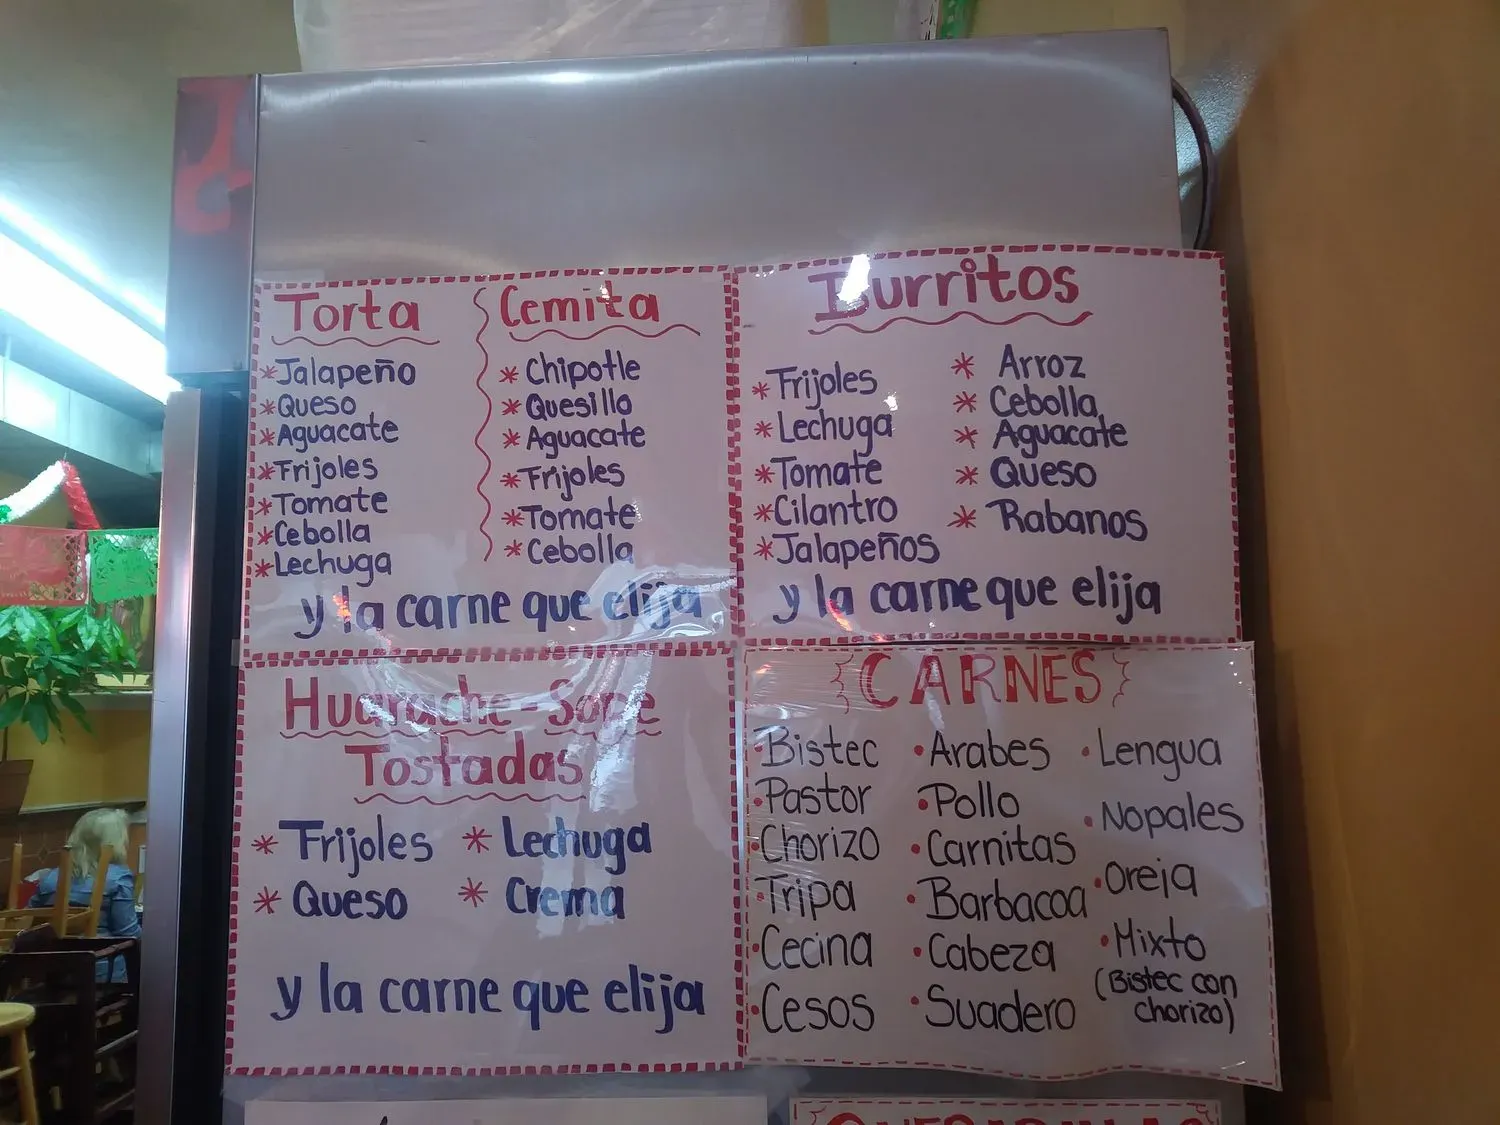 Torta
*Jalapeño
*Queso
*Aguacate
*Frijoles
*Tomate
*Cebolla
*Lechuga
Cemita
*Chipotle
*Quesillo
*Aguacate
*Frijoles
*Tomate
*Cebolla
y la carne que elija
Burritos
*Frijoles
*Lechuga
*Tomate
*Cilantro
*Jalapeños
*Arroz
*Cebolla
*Aguacate
*Queso
*Rabanos
y la carne que elija
Huarache-Sope
Tostadas
*Frijoles
*Queso
*Lechuga
*Crema
y la carne que elija
CARNES
•Bistec
•Pastor
•Chorizo
•Tripa
•Cecina
•Cesos
•Arabes
•Pollo
•Carnitas
•Barbacoa
•Cabeza
•Suadero
•Lengua
•Nopales
•Oreja
•Mixto
(Bistec con
chorizo)